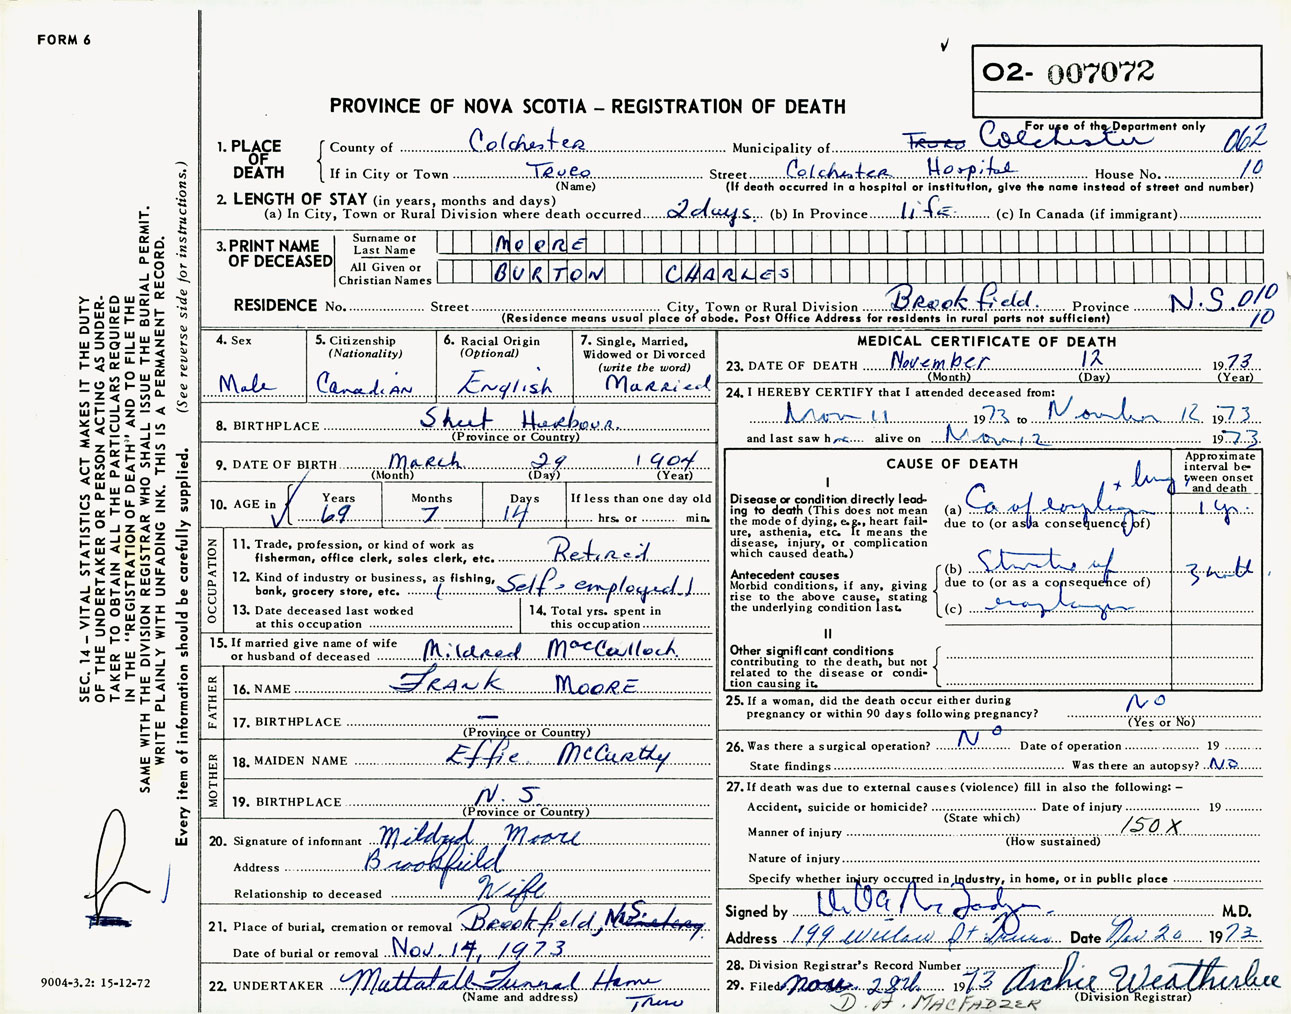 FORM 6
O2- 007072
PROVINCE OF NOVA SCOTIA – REGISTRATION OF DEATH
For use of the Department only
1. PLACE OF DEATH
County of Colchester Municipality of Truro Colchester 062
If in City or Town Truro Street Colchester Hospital House No. 10
(Name) (If death occurred in a hospital or institution, give the name instead of street and number)
2. LENGTH OF STAY (in years, months and days)
(a) In City, Town or Rural Division where death occurred 2 days. (b) In Province life. (c) In Canada (if immigrant)
3. PRINT NAME OF DECEASED
Surname or Last Name MOORE
All Given or Christian Names BURTON CHARLES
RESIDENCE No. Street City, Town or Rural Division Brookfield. Province N.S. 010
(Residence means usual place of abode. Post Office Address for residents in rural parts not sufficient) 10
4. Sex
Male
5. Citizenship
(Nationality)
Canadian
6. Racial Origin
(Optional)
English
7. Single, Married,
Widowed or Divorced
(write the word)
Married
8. BIRTHPLACE Sheet Harbour.
(Province or Country)
9. DATE OF BIRTH March 29 1904
(Month) (Day) (Year)
10. AGE in
Years Months Days If less than one day old
69 7 14 hrs. or min.
OCCUPATION
11. Trade, profession, or kind of work as
fisherman, office clerk, sales clerk, etc. Retired
12. Kind of industry or business, as fishing,
bank, grocery store, etc. (Self-employed)
13. Date deceased last worked
at this occupation
14. Total yrs. spent in
this occupation
15. If married give name of wife
or husband of deceased Mildred MacCulloch
FATHER
16. NAME FRANK MOORE
17. BIRTHPLACE —
(Province or Country)
MOTHER
18. MAIDEN NAME Effie McCurthy
19. BIRTHPLACE N. S
(Province or Country)
20. Signature of informant Mildred Moore
Address Brookfield
Relationship to deceased Wife
21. Place of burial, cremation or removal Brookfield, N.S. Cemetery
Date of burial or removal Nov. 14, 1973
22. UNDERTAKER Mattatall Funeral Home
(Name and address) Truro
MEDICAL CERTIFICATE OF DEATH
23. DATE OF DEATH November 12 1973
(Month) (Day) (Year)
24. I HEREBY CERTIFY that I attended deceased from:
Nov 11 1973 to November 12 1973
and last saw h alive on Nov 12 1973
CAUSE OF DEATH
Approximate
interval be-
tween onset
and death
I
Disease or condition directly lead-
ing to death (This does not mean
the mode of dying, e.g., heart fail-
ure, asthenia, etc. It means the
disease, injury, or complication
which caused death.)
(a) Ca of esophagus + lung 1 yr.
due to (or as a consequence of)
Antecedent causes
Morbid conditions, if any, giving
rise to the above cause, stating
the underlying condition last.
(b) Stricture of 3 month
due to (or as a consequence of)
(c) esophagus
II
Other significant conditions
contributing to the death, but not
related to the disease or condi-
tion causing it.
25. If a woman, did the death occur either during
pregnancy or within 90 days following pregnancy? NO
(Yes or No)
26. Was there a surgical operation? No Date of operation 19
State findings Was there an autopsy? No
27. If death was due to external causes (violence) fill in also the following: –
Accident, suicide or homicide? Date of injury 19
(State which)
Manner of injury 150X
(How sustained)
Nature of injury
Specify whether injury occurred in industry, in home, or in public place
Signed by M.D.
Address 199 Willow St Truro Date Nov 20 1973
28. Division Registrar's Record Number
29. Filed Nov 28th 1973 Archie Weatherbee
(Division Registrar)
D. A. MACFADZEN
SEC. 14 – VITAL STATISTICS ACT MAKES IT THE DUTY
OF THE UNDERTAKER OR PERSON ACTING AS UNDER-
TAKER TO OBTAIN ALL THE PARTICULARS REQUIRED
IN THE "REGISTRATION OF DEATH" AND TO FILE THE
SAME WITH THE DIVISION REGISTRAR WHO SHALL ISSUE THE BURIAL PERMIT.
WRITE PLAINLY WITH UNFADING INK. THIS IS A PERMANENT RECORD.
Every item of information should be carefully supplied. (See reverse side for instructions.)
9004-3.2: 15-12-72